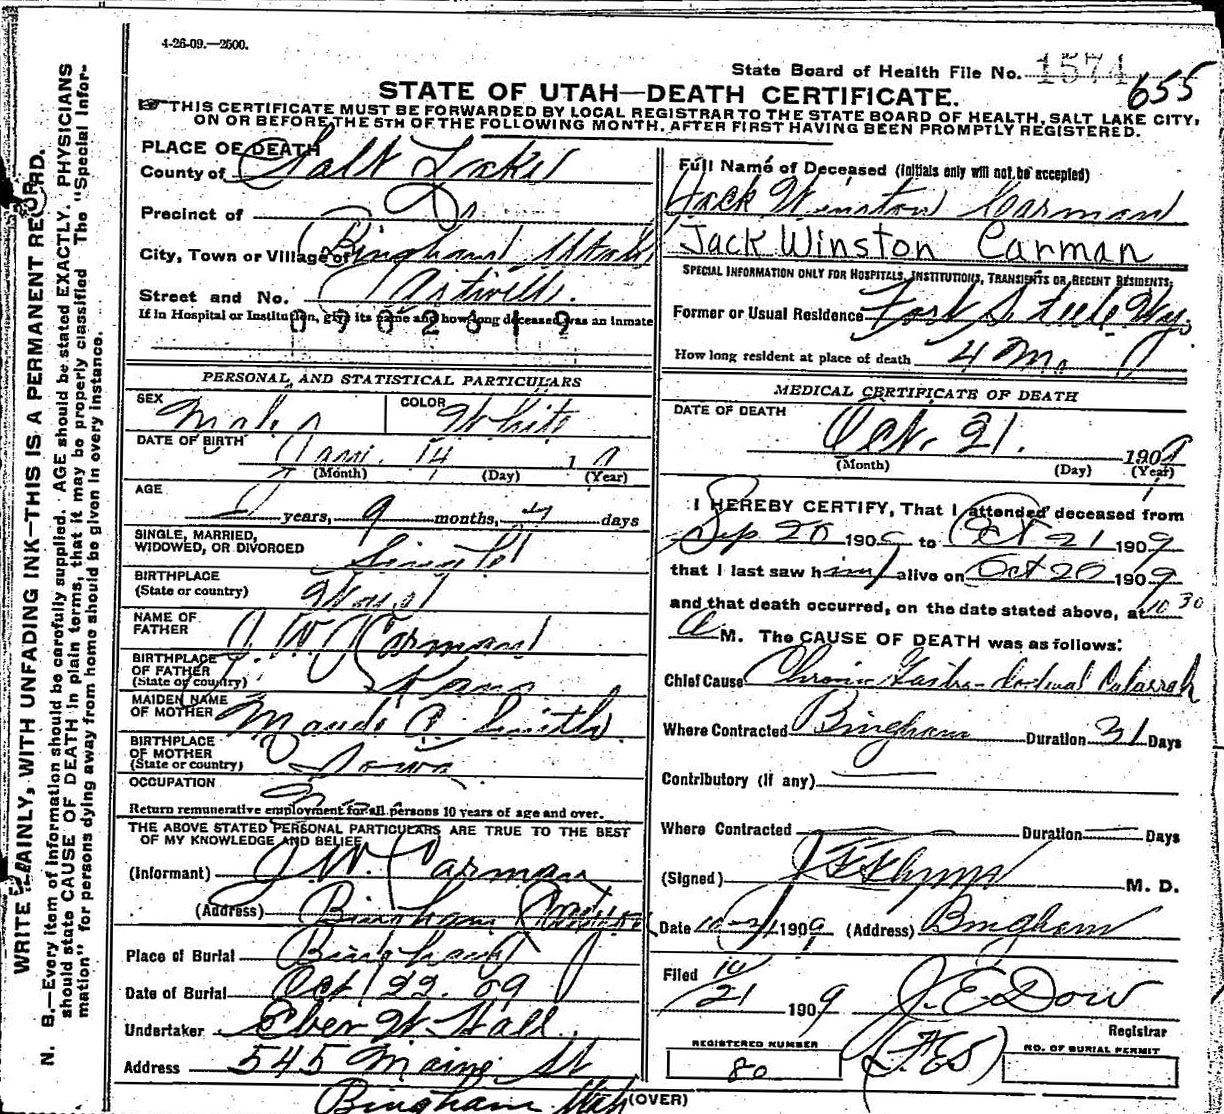 4-26-09.—2500.
State Board of Health File No. 1574
655
STATE OF UTAH—DEATH CERTIFICATE.
THIS CERTIFICATE MUST BE FORWARDED BY LOCAL REGISTRAR TO THE STATE BOARD OF HEALTH, SALT LAKE CITY,
ON OR BEFORE THE 5TH OF THE FOLLOWING MONTH, AFTER FIRST HAVING BEEN PROMPTLY REGISTERED.
WRITE PLAINLY, WITH UNFADING INK—THIS IS A PERMANENT RECORD.
N. B.—Every item of information should be carefully supplied. AGE should be stated EXACTLY. PHYSICIANS
should state CAUSE OF DEATH in plain terms, that it may be properly classified. The "Special Infor-
mation" for persons dying away from home should be given in every instance.
PLACE OF DEATH
County of Salt Lake
Precinct of Do
City, Town or Village of Bingham Utah
Street and No.
If in Hospital or Institution, give its name and how long deceased was an inmate
PERSONAL AND STATISTICAL PARTICULARS
SEX Male COLOR White
DATE OF BIRTH Jan. 14 1 9
(Month) (Day) (Year)
AGE
years, 9 months, 7 days
SINGLE, MARRIED,
WIDOWED, OR DIVORCED Single
BIRTHPLACE
(State or country)
NAME OF
FATHER J. W. Carman
BIRTHPLACE
OF FATHER
(State or country)
MAIDEN NAME
OF MOTHER Maude C. Smith
BIRTHPLACE
OF MOTHER
(State or country) Iowa
OCCUPATION
Return remunerative employment for all persons 10 years of age and over.
THE ABOVE STATED PERSONAL PARTICULARS ARE TRUE TO THE BEST
OF MY KNOWLEDGE AND BELIEF
(Informant) J. W. Carman
(Address) Bingham
Place of Burial Bingham
Date of Burial Oct 22. 09
Undertaker Eber W Hall
Address 545 Maine St
Bingham Utah
Full Name of Deceased (Initials only will not be accepted)
Jack Winston Carman
Jack Winston Carman
SPECIAL INFORMATION ONLY FOR HOSPITALS, INSTITUTIONS, TRANSIENTS OR RECENT RESIDENTS,
Former or Usual Residence Fort Steele Wyo.
How long resident at place of death 4 Mo
MEDICAL CERTIFICATE OF DEATH
DATE OF DEATH
Oct. 21. 1909
(Month) (Day) (Year)
I HEREBY CERTIFY, That I attended deceased from
Sep 20 1909 to Oct 21 1909
that I last saw him alive on Oct 20 1909
and that death occurred, on the date stated above, at 10 30
A M. The CAUSE OF DEATH was as follows:
Chief Cause Chronic Gastro-duodenal Catarrah
Where Contracted Bingham Duration 31 Days
Contributory (if any)
Where Contracted Duration Days
(Signed) M. D.
Date 10-21 1909 (Address) Bingham
Filed 10/21 1909 J. E. Dow
Registrar
REGISTERED NUMBER
80
NO. OF BURIAL PERMIT
(OVER)